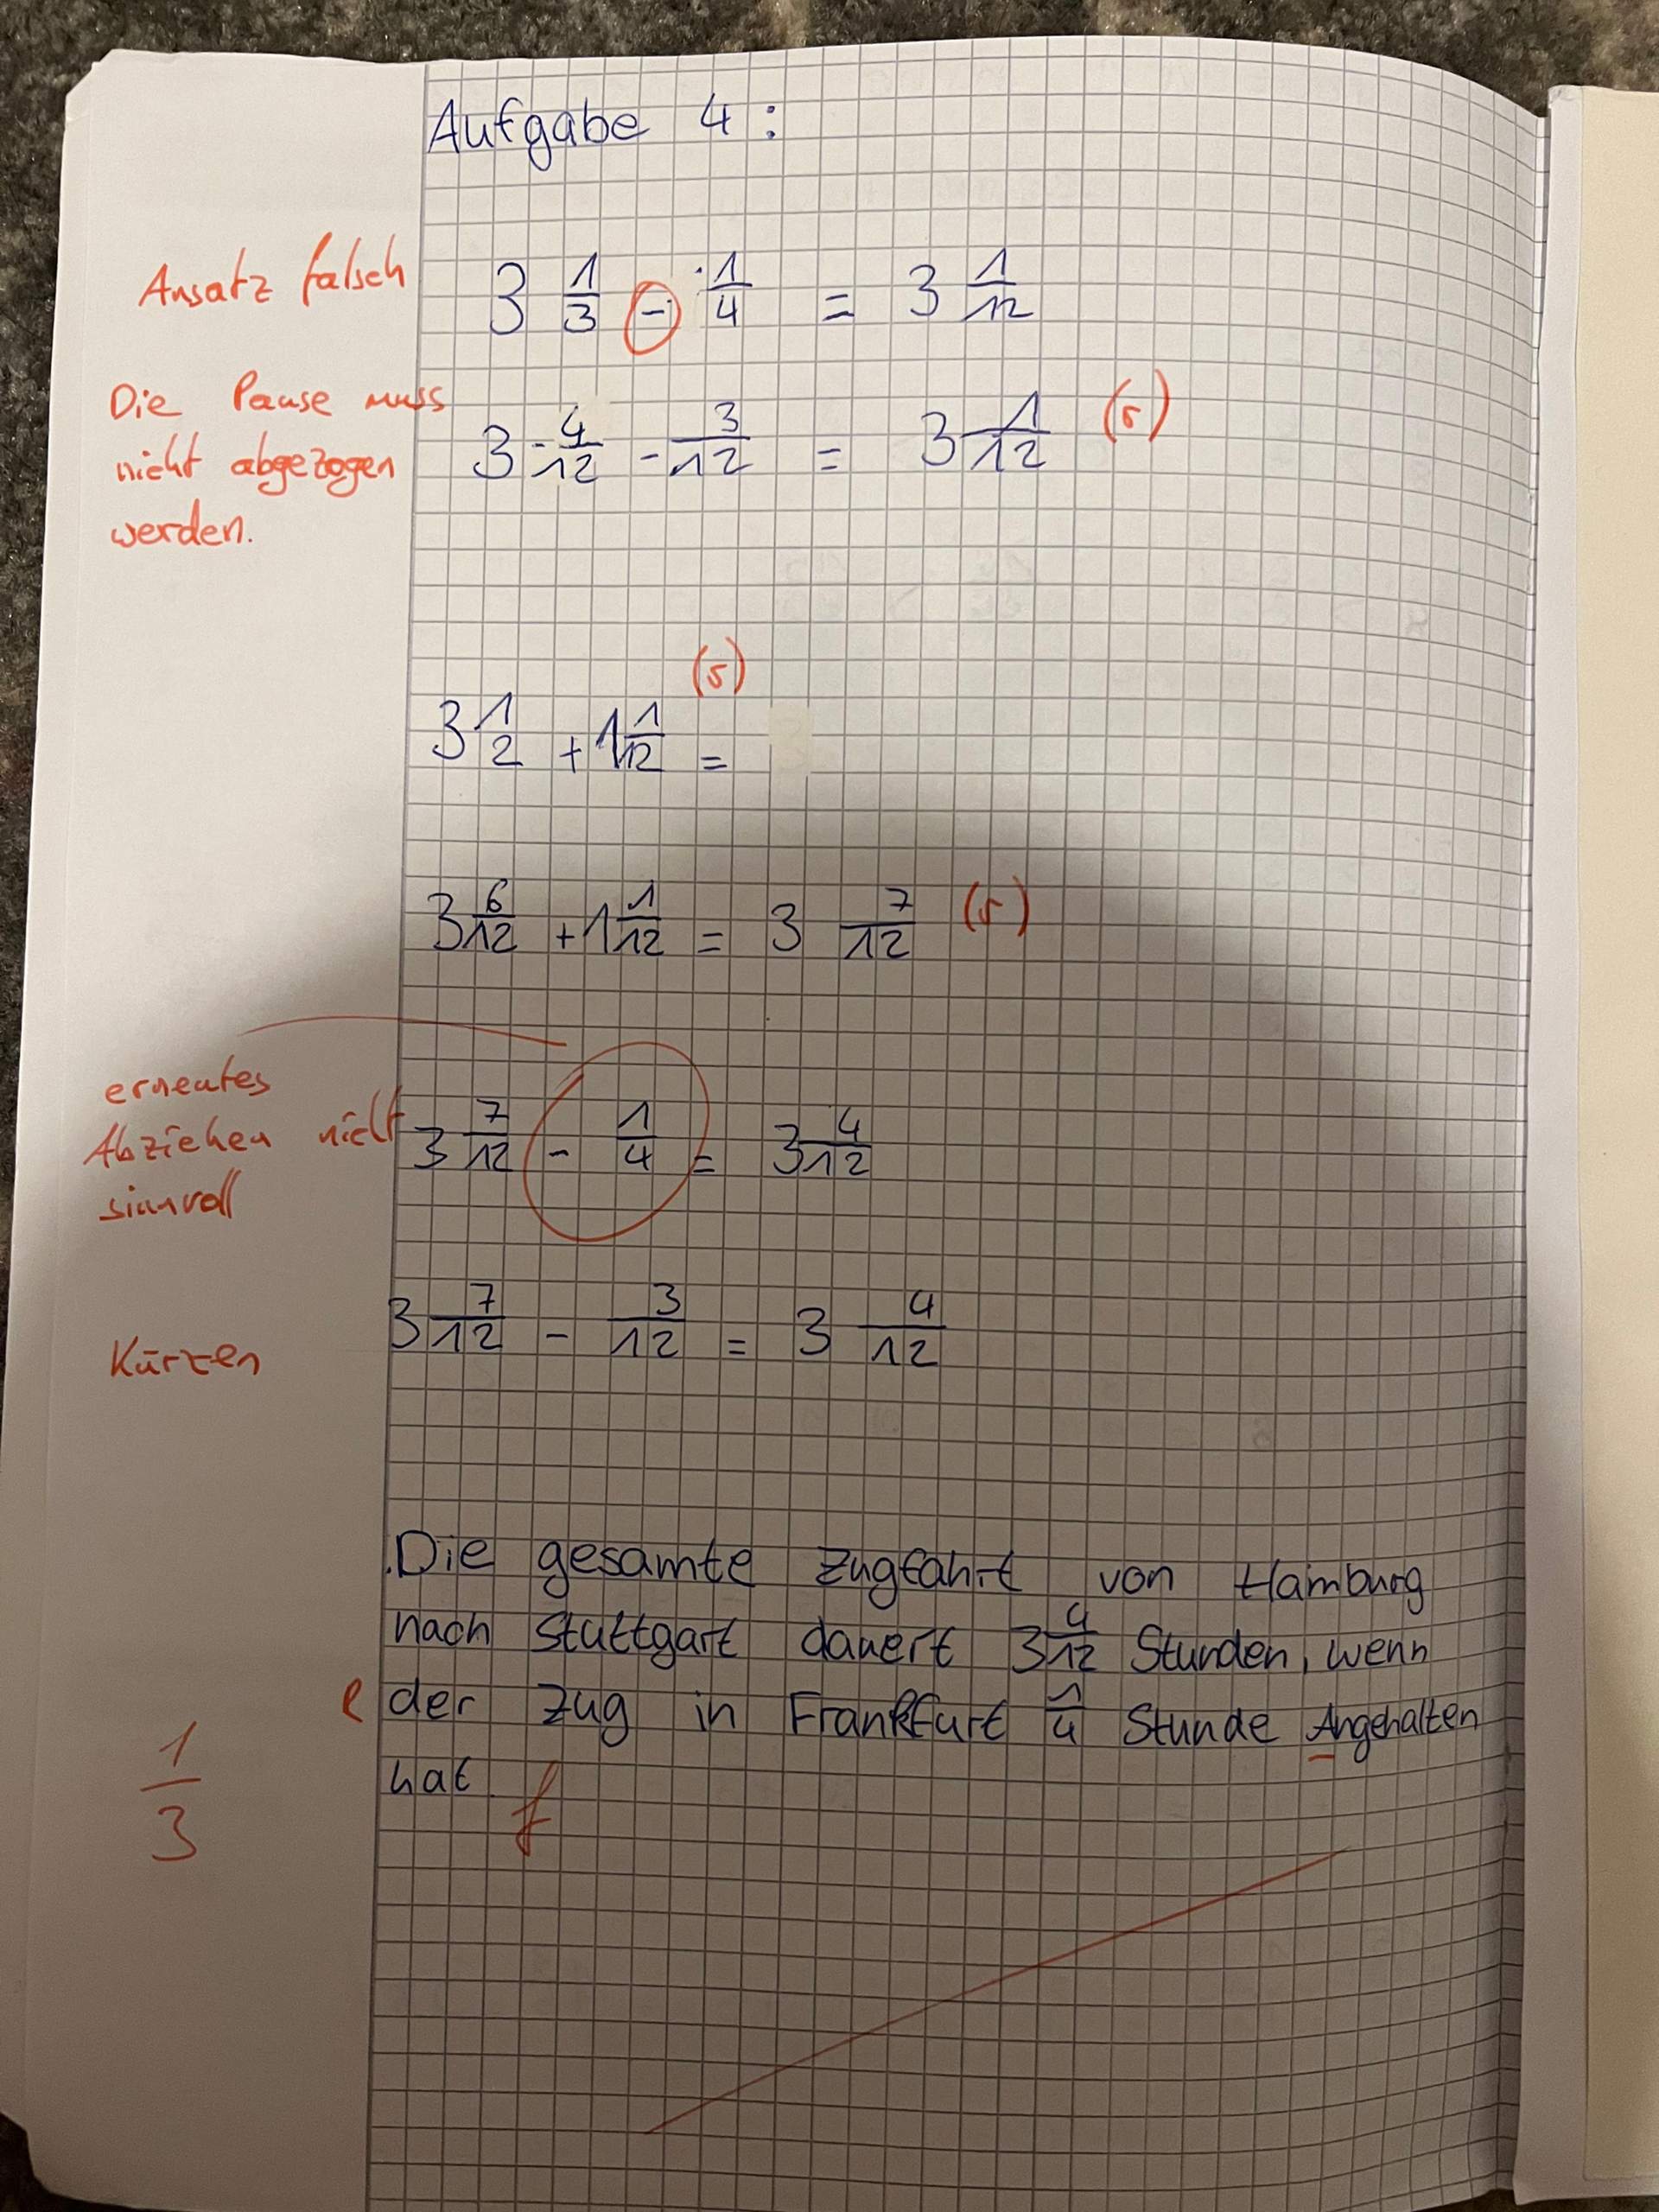 Aufgabe 4:
Ansatz falsch
3 1/3 - 1/4 = 3 1/12
Die Pause muss
nicht abgezogen
werden.
3 4/12 - 3/12 = 3 1/12 (r)
(r)
3 1/2 + 1 1/12 =
3 6/12 + 1 1/12 = 3 7/12 (r)
erneutes
Abziehen nicht
sinnvoll
3 7/12 - 1/4 = 3 4/12
3 7/12 - 3/12 = 3 4/12
Kürzen
Die gesamte Zugfahrt von Hamburg
nach Stuttgart dauert 3 4/12 Stunden, wenn
der Zug in Frankfurt 1/4 Stunde Angehalten
hat. f
1/3